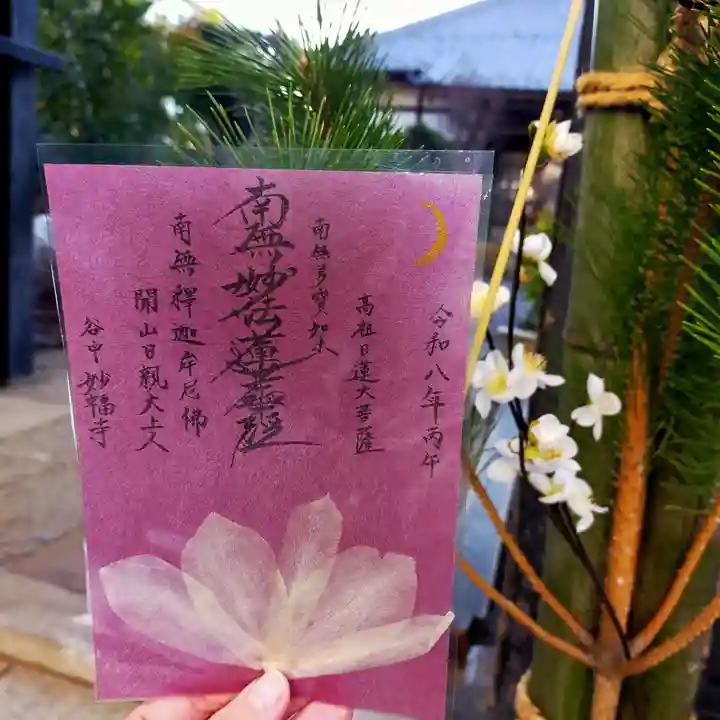 令和八年丙午
高祖日蓮大菩薩
南無多寶如来
南無妙法蓮華経
南無釋迦牟尼佛
開山日親大上人
谷中妙福寺